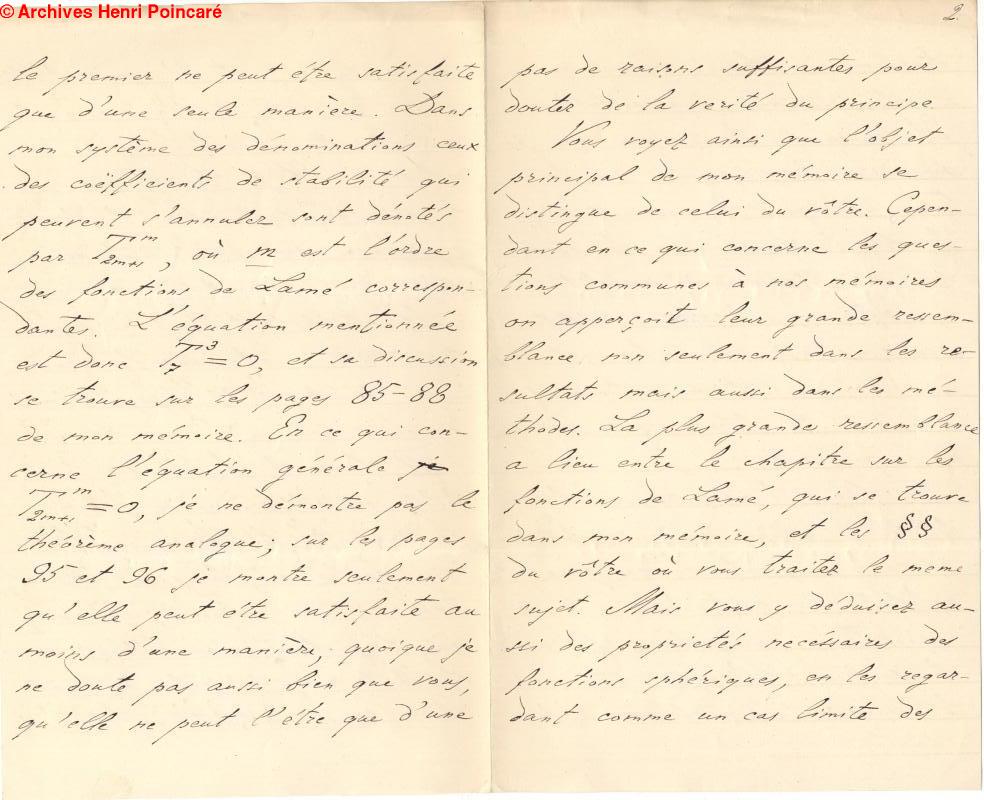 © Archives Henri Poincaré
le premier ne peut être satisfaite
que d'une seule manière. Dans
mon système des dénominations ceux
des coëfficients de stabilité qui
peuvent s'annuler sont dénotés
par T_{2m+1}^m, où m est l'ordre
des fonctions de Lamé correspon-
dantes. L'équation mentionnée
est donc T_7^3=0, et sa discussion
se trouve sur les pages 85-88
de mon mémoire. En ce qui con-
cerne l'équation générale je
T_{2m+1}^m=0, je ne démontre pas le
théorème analogue; sur les pages
95 et 96 je montre seulement
qu'elle peut être satisfaite au
moins d'une manière, quoique je
ne doute pas aussi bien que vous,
qu'elle ne peut l'être que d'une
2.
pas de raisons suffisantes pour
douter de la verité du principe
Vous voyez ainsi que l'objet
principal de mon mémoire se
distingue de celui du vôtre. Cepen-
dant en ce qui concerne les ques-
tions communes à nos mémoires
on apperçoit leur grande ressem-
blance non seulement dans les re-
sultats mais aussi dans les mé-
thodes. La plus grande ressemblance
a lieu entre le chapitre sur les
fonctions de Lamé, qui se trouve
dans mon mémoire, et les §§
du vôtre où vous traitez le meme
sujet. Mais vous y déduisez au-
ssi des propriétés necéssaires des
fonctions sphériques, en les regar-
dant comme un cas limite des